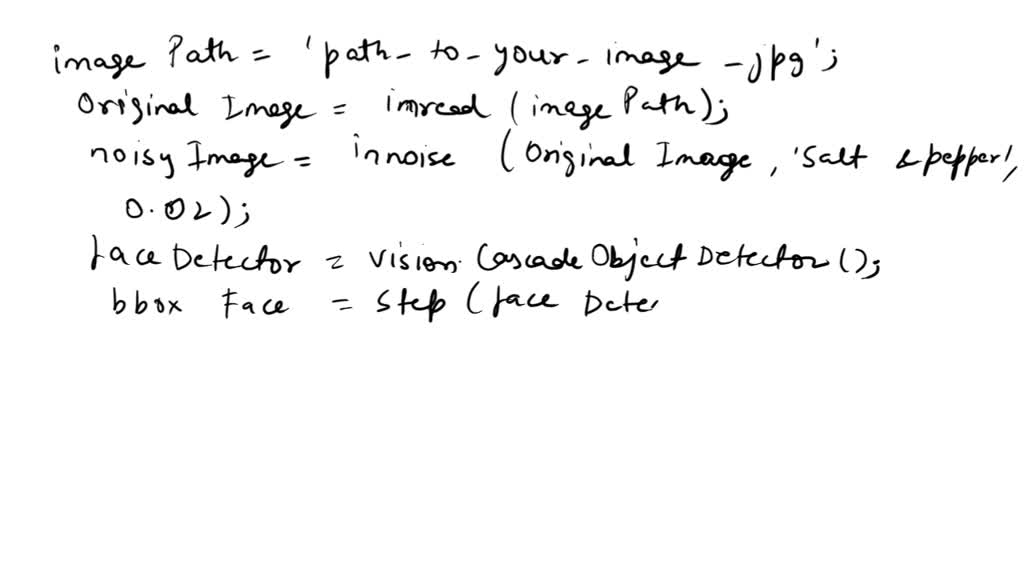 image Path = 'path-to-your-image-jpg';
Original Image = imread (image Path);
noisy Image = innoise (Original Image, 'Salt & pepper',
0.02);
face Detector = vision. Cascade Object Detector ();
bbox Face = Step (face Dete